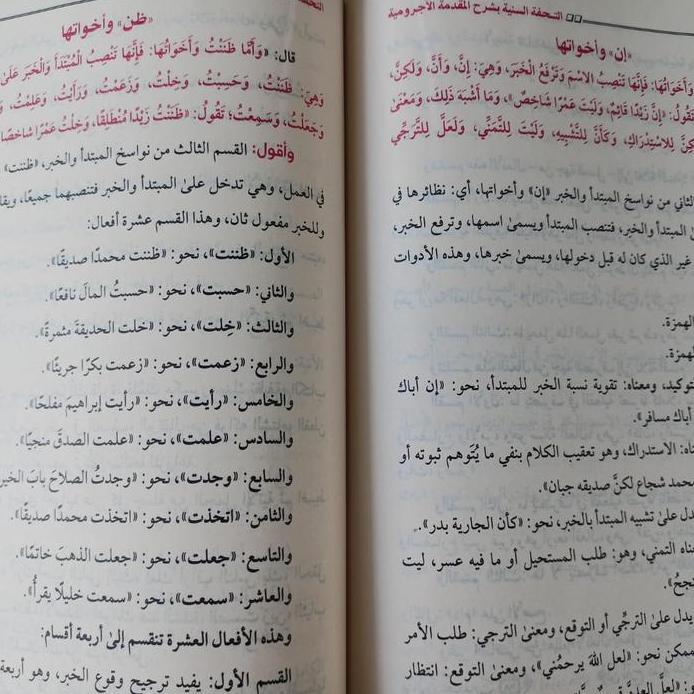 التحفة السنية بشرح المقدمة الآجرومية
«إن» وأخواتها
وَأَخَوَاتُهَا: فَإِنَّهَا تَنْصِبُ الاسْمَ وَتَرْفَعُ الْخَبَرَ، وَهِيَ: إِنَّ، وَأَنَّ، وَلَكِنَّ،
تَقُولُ: «إِنَّ زَيْدًا قَائِمٌ، وَلَيْتَ عَمْرًا شَاخِصٌ»، وَمَا أَشْبَهَ ذَلِكَ، وَمَعْنَىٰ
لِلاسْتِدْرَاكِ، وَكَأَنَّ لِلتَّشْبِيهِ، وَلَيْتَ لِلتَّمَنِّي، وَلَعَلَّ لِلتَّرَجِّي
الثاني من نواسخ المبتدأ والخبر «إن» وأخواتها، أي: نظائرها في
المبتدأ والخبر، فتنصب المبتدأ ويسمىٰ اسمها، وترفع الخبر،
غير الذي كان له قبل دخولها، ويسمىٰ خبرها، وهذه الأدوات
الهمزة.
الهمزة.
ومعناه: تقوية نسبة الخبر للمبتدأ، نحو: «إن أباك
أباك مسافر».
الاستدراك، وهو تعقيب الكلام بنفي ما يُتَوهم ثبوته أو
محمد شجاع لكنَّ صديقه جبان».
علىٰ تشبيه المبتدأ بالخبر، نحو: «كأن الجارية بدر».
التمني، وهو: طلب المستحيل أو ما فيه عسر، ليت
يدل علىٰ الترجِّي أو التوقع، ومعنىٰ الترجي: طلب الأمر
نحو: «لعل اللهَ يرحمُني»، ومعنىٰ التوقع: انتظار
«ظن» وأخواتها
قال: «وَأَمَّا ظَنَنْتُ وَأَخَوَاتُهَا: فَإِنَّهَا تَنْصِبُ الْمُبْتَدَأَ وَالْخَبَرَ عَلَىٰ
وَهِيَ: ظَنَنْتُ، وَحَسِبْتُ، وَخِلْتُ، وَزَعَمْتُ، وَرَأَيْتُ، وَعَلِمْتُ،
وَجَعَلْتُ، وَسَمِعْتُ؛ تَقُولُ: «ظَنَنْتُ زَيْدًا مُنْطَلِقًا، وَخِلْتُ عَمْرًا شَاخِصًا
وأقول: القسم الثالث من نواسخ المبتدأ والخبر، «ظننت»
في العمل، وهي تدخل علىٰ المبتدأ والخبر فتنصبهما جميعًا،
وللخبر مفعول ثان، وهذا القسم عشرة أفعال:
الأول: «ظننت»، نحو: «ظننت محمدًا صديقًا».
والثاني: «حسبت»، نحو: «حسبتُ المالَ نافعًا».
والثالث: «خِلت»، نحو: «خلت الحديقةَ مثمرةً».
والرابع: «زعمت»، نحو: «زعمت بكرًا جريئًا».
والخامس: «رأيت»، نحو: «رأيت إبراهيمَ مفلحًا».
والسادس: «علمت»، نحو: «علمت الصدقَ منجيًا».
والسابع: «وجدت»، نحو: «وجدتُ الصلاحَ بابَ الخير
والثامن: «اتخذت»، نحو: «اتخذت محمدًا صديقًا».
والتاسع: «جعلت»، نحو: «جعلت الذهبَ خاتمًا».
والعاشر: «سمعت»، نحو: «سمعت خليلًا يقرأُ».
وهذه الأفعال العشرة تنقسم إلىٰ أربعة أقسام:
القسم الأول: يفيد ترجيح وقوع الخبر، وهو أربعة